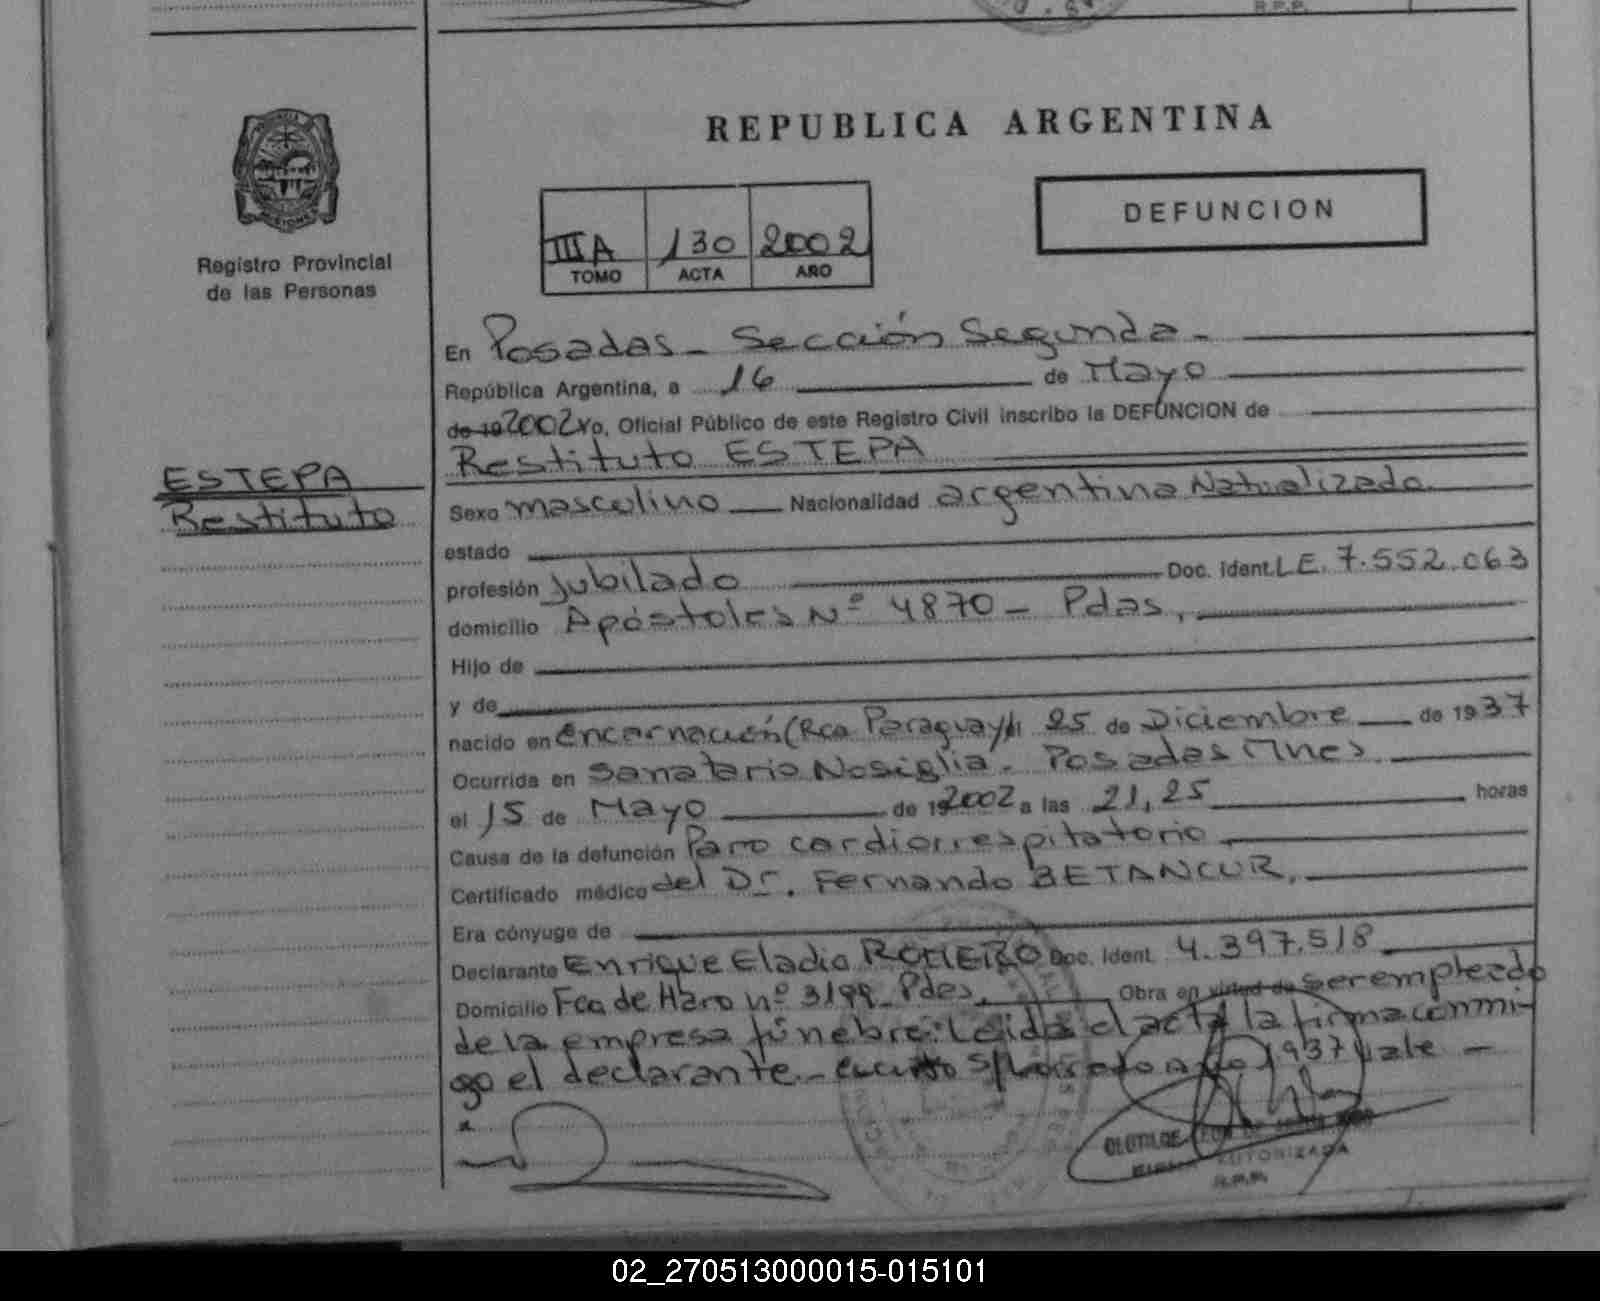 R.P.P.
REPUBLICA ARGENTINA
DEFUNCION
IIIA 130 2002
TOMO ACTA AÑO
Registro Provincial
de las Personas
En Posadas - Sección Segunda -
República Argentina, a 16 de Mayo
de 19 2002 Yo, Oficial Público de este Registro Civil inscribo la DEFUNCION de
Restituto ESTEPA
ESTEPA
Restituto
Sexo masculino Nacionalidad argentina Naturalizado
estado
profesión jubilado Doc. Ident. L.E. 7.552.063
domicilio Apóstoles Nº 4870 - Pdas,
Hijo de
y de
nacido en Encarnación (Rca Paraguay) el 25 de Diciembre de 1937
Ocurrida en Sanatorio Nosiglia. Posadas Mnes.
el 15 de Mayo de 19 2002 a las 21,25 horas
Causa de la defunción Paro cardiorrespitatorio
Certificado médico del Dr. Fernando BETANCUR,
Era cónyuge de
Declarante Enrique Eladio ROMERO Doc. Ident. 4.397.518
Domicilio Fco de Haro nº 3199 - Pdas, Obra en virtud de ser empleado
de la empresa fúnebre: Leida el acta la firma conmi-
go el declarante - 1937 vale -
AUTORIZADA
R.P.P.
02_270513000015-015101